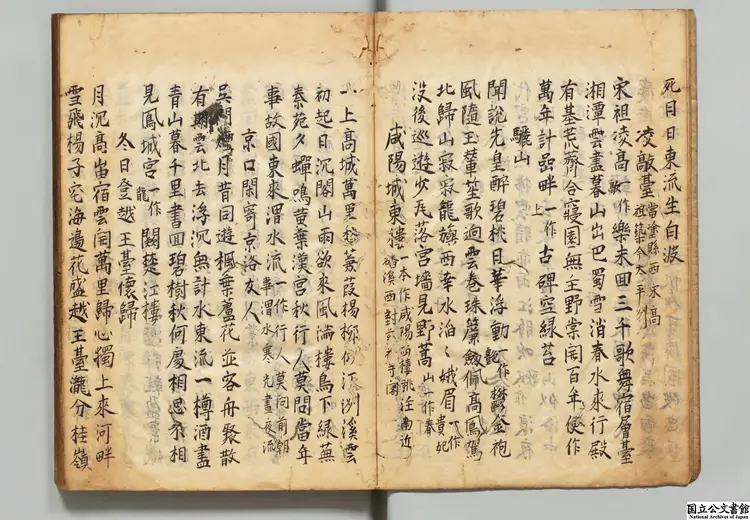 死目日東流生白波
凌敲臺 當塗縣西宋高祖築今太平州
宋祖凌高敲一作樂未回三千歌舞宿層臺
湘潭雲盡暮山出巴蜀雪消春水來行殿
有基荒薺合寢園無主野棠開百年便作
萬年計嵒畔一作上古碑空綠苔
驪山
聞說先皇醉碧桃日華浮動一作艶鬱金袍
風隨玉輦笙歌逈雲卷珠簾劔佩高鳳駕
北歸山寂寂龍旟西幸水滔〻娥眉一作貴妃
没後巡遊少瓦落宮墻見野蒿山一作春
咸陽城東樓 一本作咸陽西樓眺在南近溪西對寺閣
一上高城萬里愁蒹葭楊柳似汀洲溪雲
初起日沉閣山雨欲來風滿樓鳥下綠蕪
秦苑夕蟬鳴黄葉漢宮秋行人莫問當年
事故國東來渭水流一作行人莫向前朝事渭水寒光晝夜流
京口閑寄京洛友人
吳門煙月昔同遊楓葉蘆花並客舟聚散
有期雲北去浮沉無計水東流一樽酒盡
青山暮千里書回碧樹秋何處相思不相
見鳳城宮一作龍闕楚江樓
冬日登越王臺懷歸
月沉高岫宿雲開萬里歸心獨上來河畔
雪飛楊子宅海邊花盛越王臺瀧分桂嶺
国立公文書館
National Archives of Japan